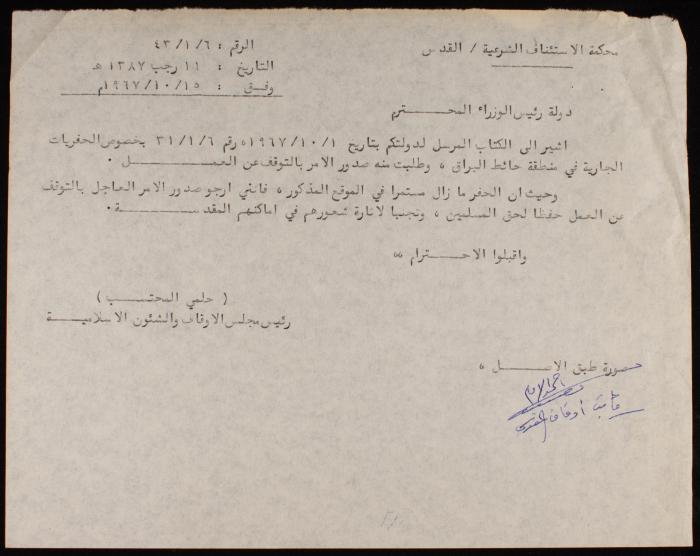 محكمة الاستئناف الشرعية / القدس
الرقم : ٤٣/١/٦
التاريخ : ١١ رجب ١٣٨٧ هـ
وفق : ١٩٦٧/١٠/١٥م
دولة رئيس الوزراء المحتـــــرم
اشير الى الكتاب المرسل لدولتكم بتاريخ ١٩٦٧/١٠/١، رقم ٣١/١/٦ بخصوص الحفريات
الجارية في منطقة حائط البراق ، وطلبت منه صدور الامر بالتوقف عن العمـــــل .
وحيث ان الحفر ما زال مستمرا في الموقع المذكور ، فانني ارجو صدور الامر العاجل بالتوقف
عن العمل حفظا لحق المسلمين ، وتجنبا لاثارة شعورهم في اماكنهم المقدســـــة .
واقبلوا الاحـــترام ،،
( حلمي المحتســـب )
رئيس مجلس الاوقاف والشئون الاسلاميـــة
صورة طبق الاصــــل ،
أوقاف القدس